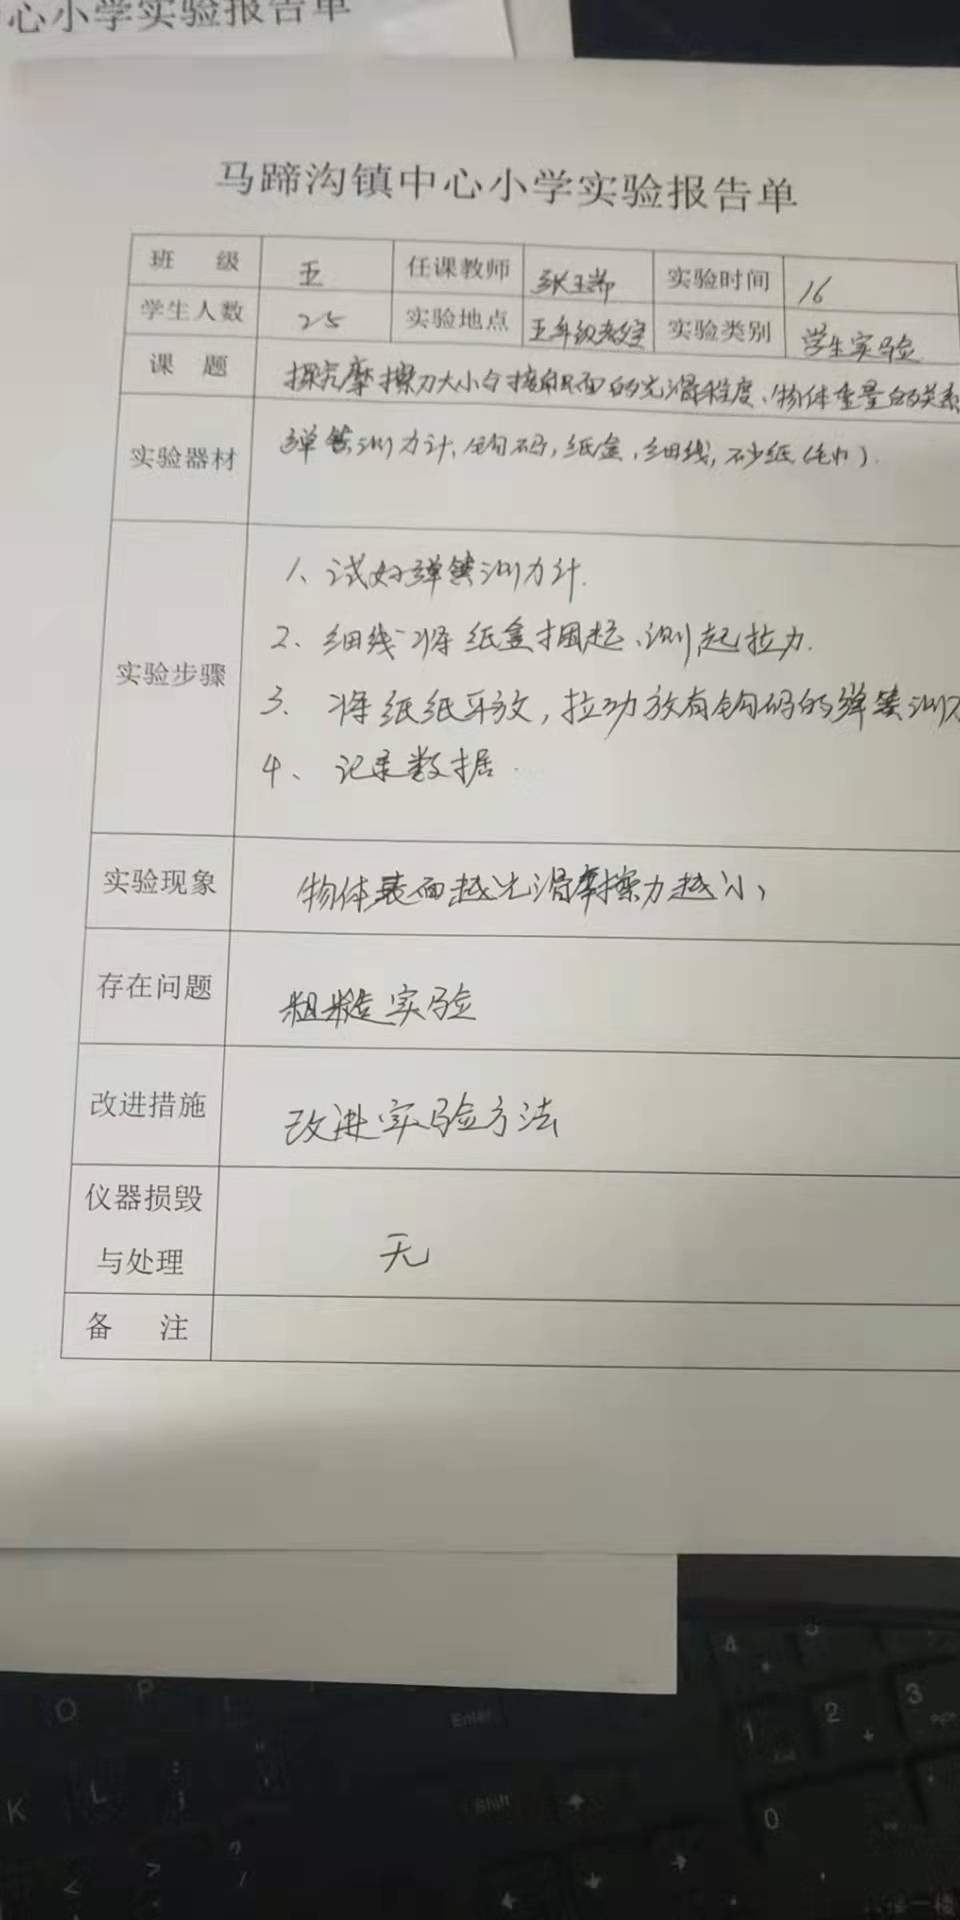 心小学实验报告单
马蹄沟镇中心小学实验报告单
班 级 五 任课教师 张玉 实验时间 16
学生人数 25 实验地点 五年级教室 实验类别 学生实验
课 题 探究摩擦力大小与接触面的光滑程度、物体重量的关系
实验器材 弹簧测力计、钩码,纸盒,细线,砂纸(毛巾).
实验步骤
1、试好弹簧测力计.
2、细线将纸盒捆起、测起拉力.
3、将纸纸平放,拉动放有钩码的弹簧测力
4、记录数据.
实验现象 物体表面越光滑摩擦力越小,
存在问题 粗糙实验
改进措施 改进实验方法
仪器损毁
与处理 无
备 注
4
O P
Enter
1 2 3
K L : ;
Shift
0
> < ?